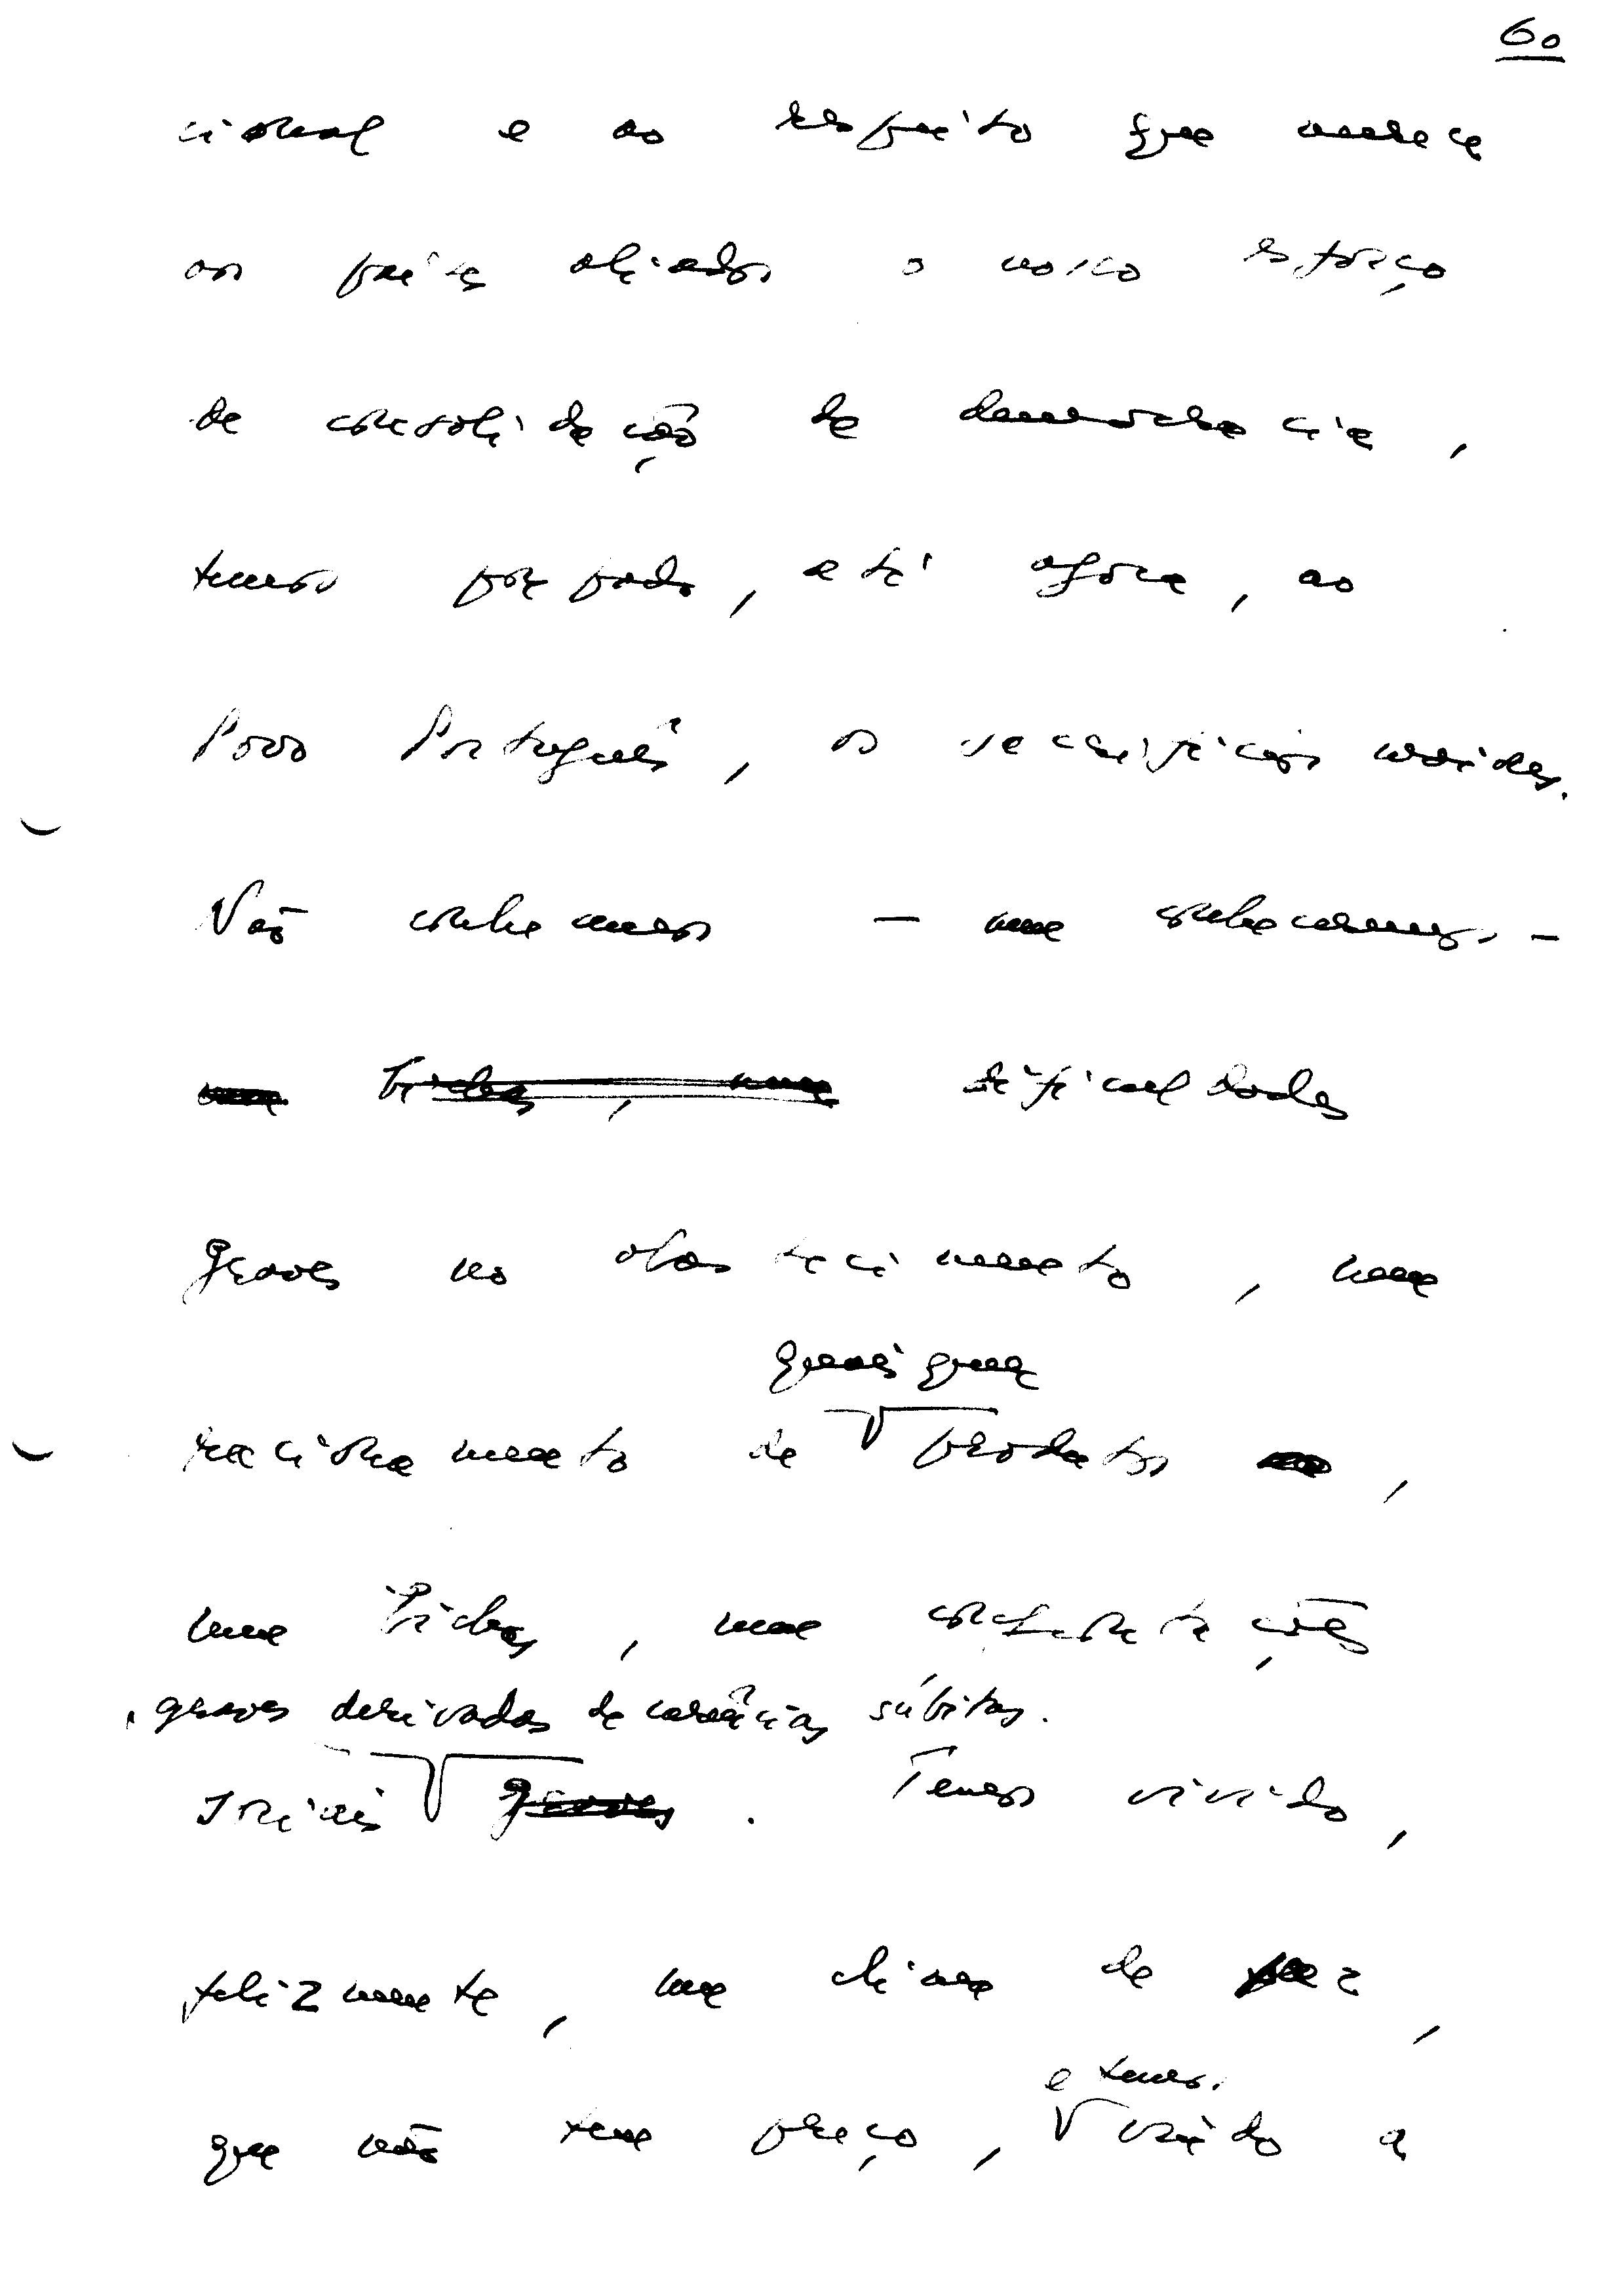 60
cional e ao respeito que merece
aos países aliados o nosso esforço
de consolidação da democracia,
temos poupado, até agora, ao
Povo Português, os sacrifícios maiores.
Não conhecemos – nem conheceremos –
nem bichas, nem dificuldades
graves no abastecimento, nem
quaisquer
racionamento de produtos,
nem bichas, nem contestações
, graves derivadas de carências súbitas.
sociais graves. Temos vivido,
felizmente, num clima de paz,
e temos
que não tem preço, vindo a